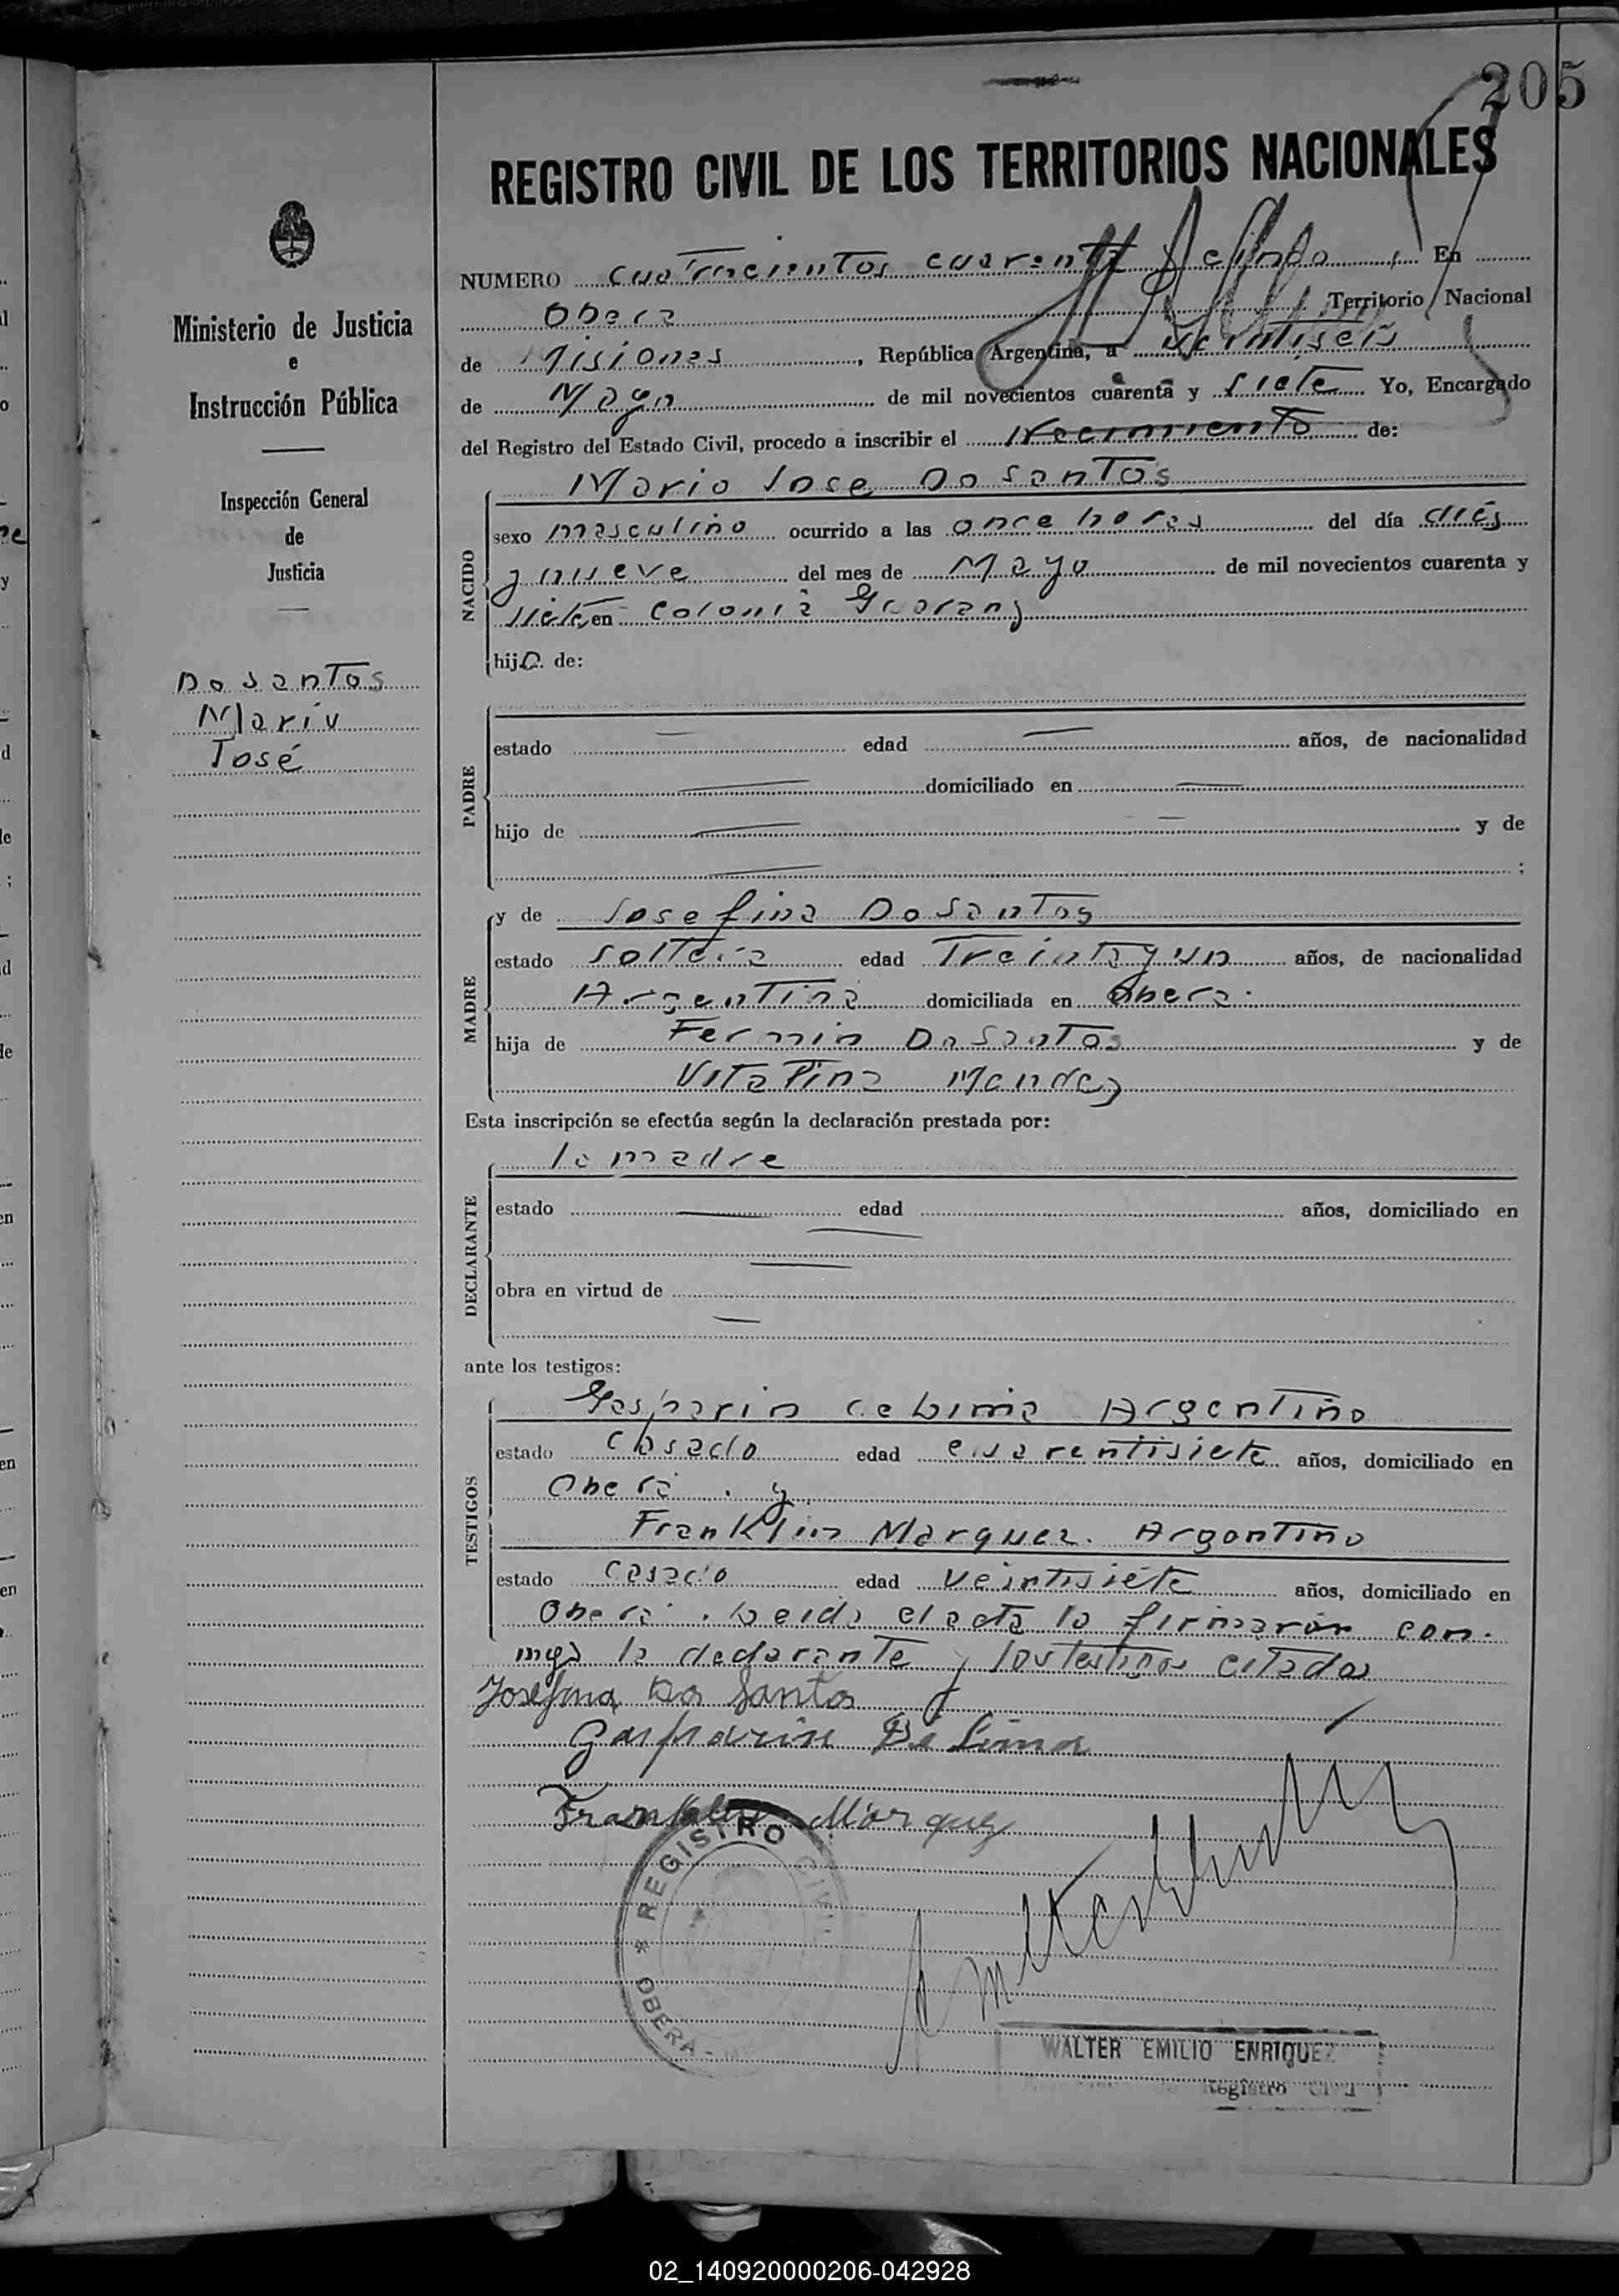 205
REGISTRO CIVIL DE LOS TERRITORIOS NACIONALES
NUMERO cuatrocientos cuarenta , En
Obera Territorio Nacional
de Misiones , República Argentina, a veintiseis
de Mayo de mil novecientos cuarenta y siete Yo, Encargado
del Registro del Estado Civil, procedo a inscribir el Nacimiento de:
NACIDO
Mario Jose Do santos
sexo masculino ocurrido a las once horas del día diés
y nueve del mes de Mayo de mil novecientos cuarenta y
siete en colonia Guarany
hijo de:
PADRE
estado — edad — años, de nacionalidad
— domiciliado en —
hijo de — y de
— ;
MADRE
y de Josefina Do Santos
estado soltera edad Treinta y un años, de nacionalidad
Argentina domiciliada en Obera.
hija de Fermin Do Santos y de
Vitalina Mendez
Esta inscripción se efectúa según la declaración prestada por:
DECLARANTE
la madre
estado — edad — años, domiciliado en
—
obra en virtud de
—
ante los testigos:
TESTIGOS
Gasparin Argentino
estado casado edad cuarentisiete años, domiciliado en
Obera . y
Franklin Marquez. Argentino
estado casado edad veintisiete años, domiciliado en
Obera . Leida el acta la firmarón con-
migo la declarante y los testigos citados
Josefina Dos Santos
Gasparin De Lima
Franklin Marquez
REGISTRO CIVIL
* OBERA -
WALTER EMILIO ENRIQUEZ
Registro Civil
Ministerio de Justicia
e
Instrucción Pública
Inspección General
de
Justicia
Do santos
Mario
José
02_140920000206-042928